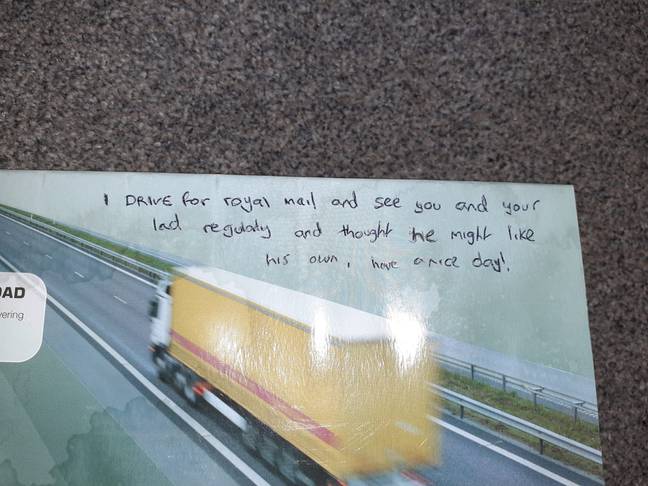 I DRIVE for royal mail and see you and your
lad regulaly and thought he might like
his own, have a nice day!,
OAD
vering